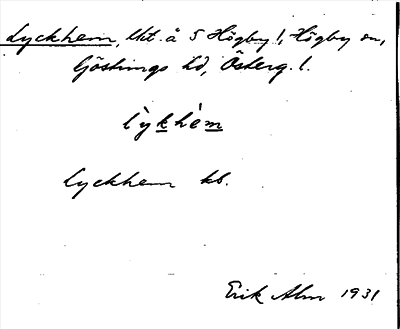 Lyckhem, lht. å 5 Högby!, Högby sn,
Göstrings hd, Österg. l.
lỳkhèm
Lyckhem kb.
Erik Alm 1931